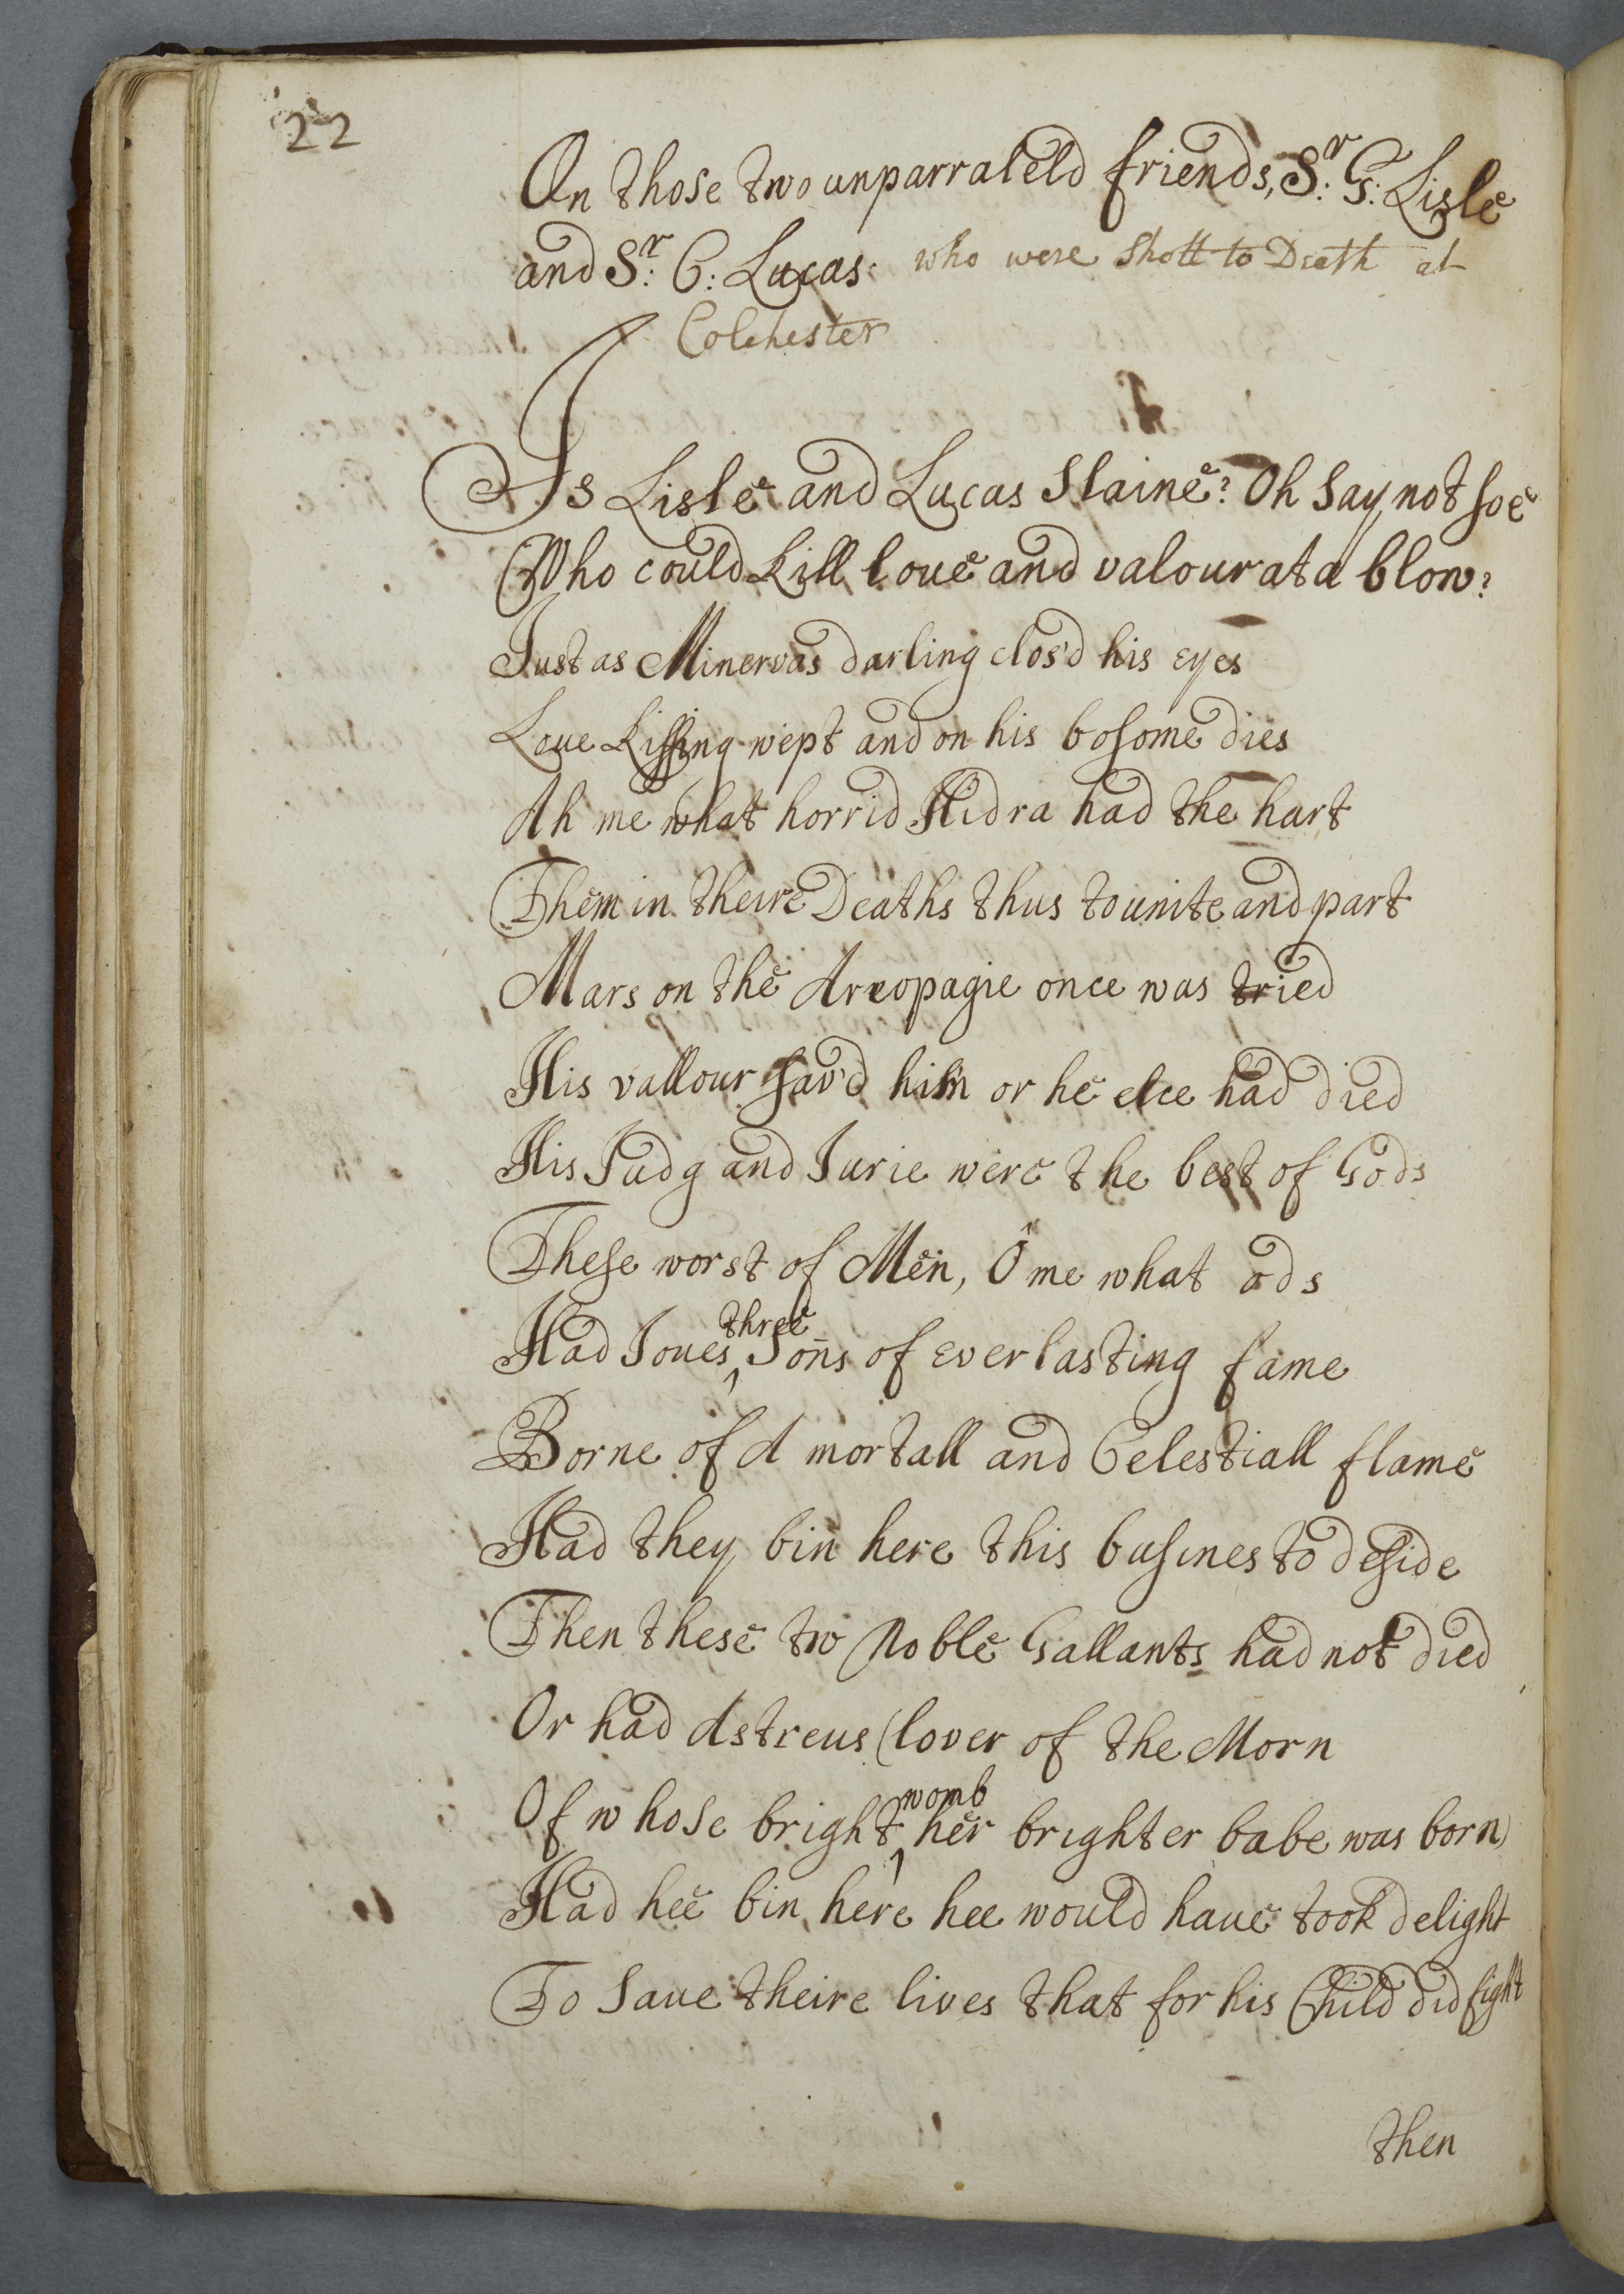 22
On those two unparraleld friends, Sr: G: Lisle
and Sr: C: Lucas: who were Shott to Death at
Colchester
Is Lisle and Lucas Slaine? Oh Say not soe
Who could Kill love and valour at a blow?
Just as Minervas darling clos'd his eyes
Loue Kissing wept and on his bosome dies
Ah me what horrid Hidra had the hart
Them in theire Deaths thus to unite and part
Mars on the Areopagie once was tried
His vallour sav'd him or he elce had died
His Judg and Jurie were the best of Gods
These worst of Men, O me what ods
Had Joues ^three Sons of everlasting fame
Borne of A mortall and Celestiall flame
Had they bin here this busines to deside
Then these tw Noble Gallants had not died
Or had Astreus (lover of the Morn
Of whose bright ^womb her brighter babe was born)
Had hee bin here hee would haue took delight
To Saue theire lives that for his Child did fight
then